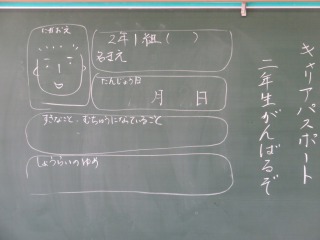 キャリアパスポート
二年生がんばるぞ
にがおえ
2年1組( )
名まえ
たんじょう日
月 日
すきなこと・むちゅうになっていること
しょうらいのゆめ